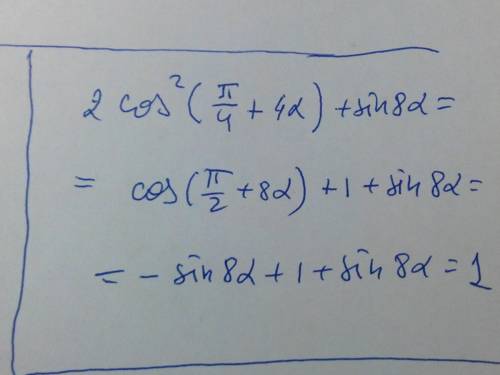 2 cos²(π/4 + 4α) + sin8α =
= cos(π/2 + 8α) + 1 + sin8α =
= - sin8α + 1 + sin8α = 1